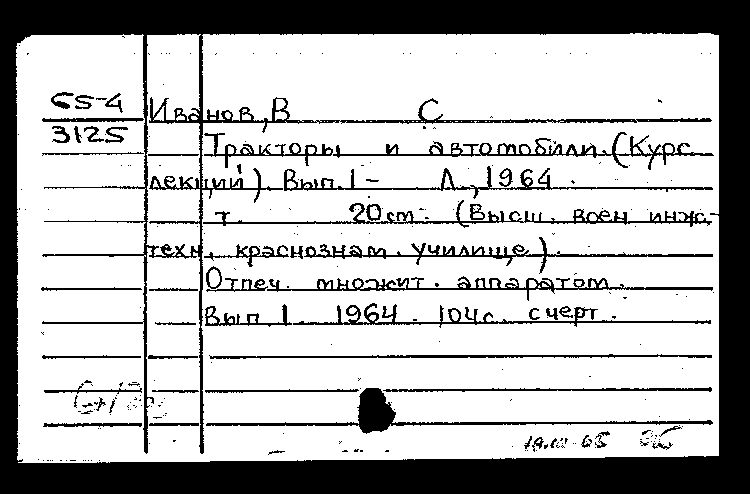 65-4 Иванов, В С
3125
Тракторы и автомобили. (Курс
лекций). Вып. 1- Л., 1964.
т. 20см. (Высш. воен инж.-
техн. краснознам. училище).
Отпеч. множит. аппаратом.
Вып 1. 1964. 104с. с черт.
65